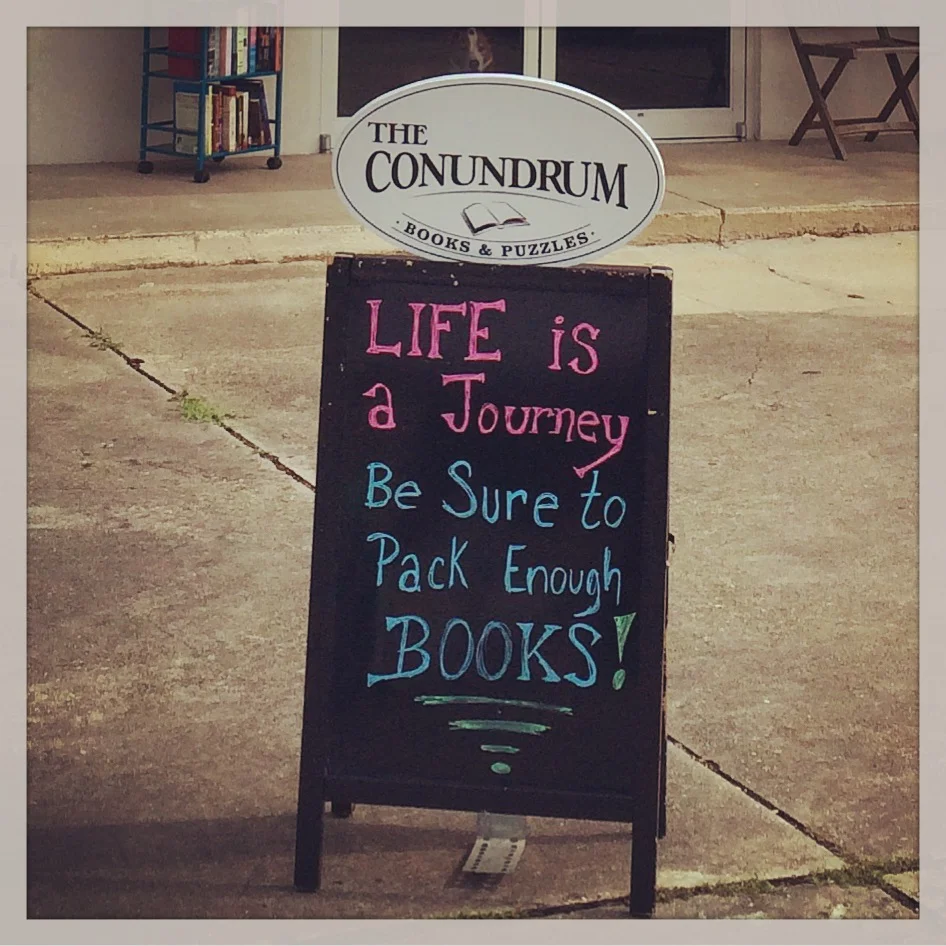 THE
CONUNDRUM
· BOOKS & PUZZLES ·
LIFE is
a Journey
Be Sure to
Pack Enough
BOOKS!